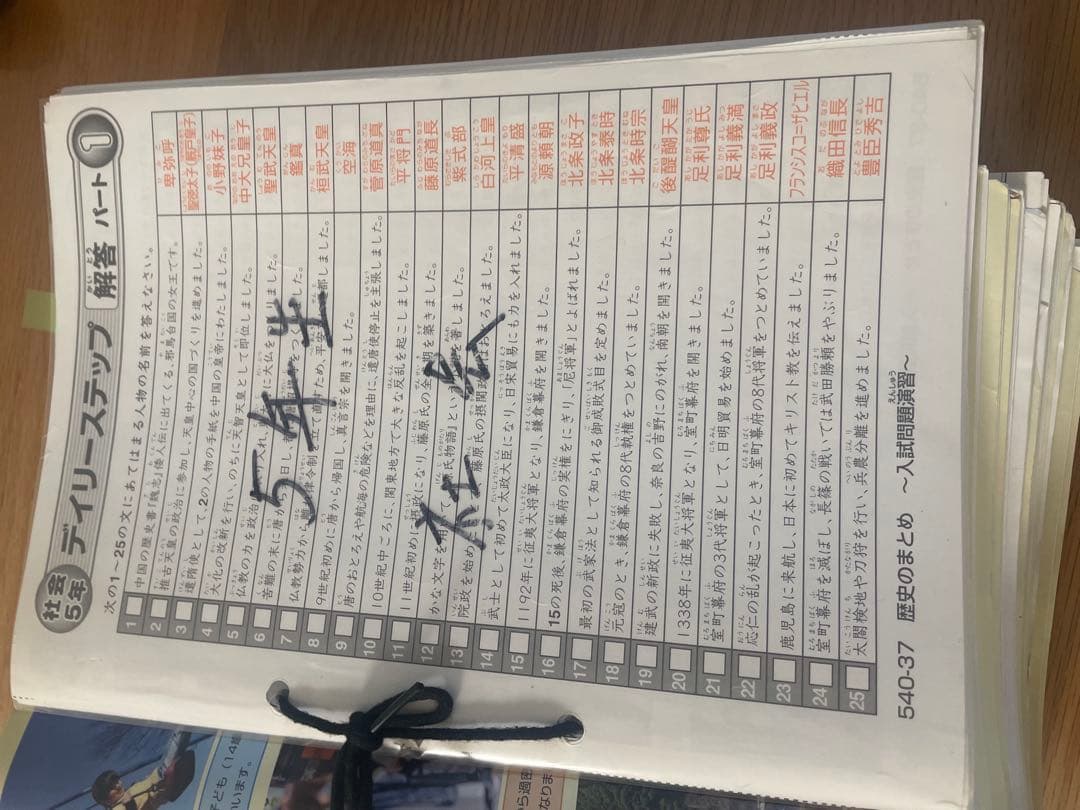 社会
5年
デイリーステップ 解答 パート 1
次の1～25の文にあてはまる人物の名前を答えなさい。
1 中国の歴史書『魏志』倭人伝に出てくる、邪馬台国の女王です。 卑弥呼
2 推古天皇の政治に参加し、天皇中心の国づくりを進めました。 聖徳太子(厩戸皇子)
3 遣隋使として、2の人物の手紙を中国の皇帝にわたしました。 小野妹子
4 大化の改新を行い、のちに天智天皇として即位しました。 中大兄皇子
5 仏教の力を政治に取り入れ、 に大仏を りました。 聖武天皇
6 苦難の末に唐から来日し、 をつ ました。 鑑真
7 仏教勢力から離 律令制を立て直すため、平安 都しました。 桓武天皇
8 9世紀初めに唐から帰国し、真言宗を開きました。 空海
9 唐のおとろえや航海の危険などを理由に、遣唐使停止を主張しました。 菅原道真
10 10世紀中ごろに、関東地方で大きな反乱を起こしました。 平将門
11 11世紀初めに摂政になり、藤原氏の全 期を築きました。 藤原道長
12 かな文字を用 氏物語』とい を著しました。 紫式部
13 院政を始め 藤原氏の摂関政 はおとろえました。 白河上皇
14 武士として初めて太政大臣になり、日宋貿易にも力を入れました。 平清盛
15 1192年に征夷大将軍となり、鎌倉幕府を開きました。 源頼朝
16 15の死後、鎌倉幕府の実権をにぎり、「尼将軍」とよばれました。 北条政子
17 最初の武家法として知られる御成敗式目を定めました。 北条泰時
18 元寇のとき、鎌倉幕府の8代執権をつとめていました。 北条時宗
19 建武の新政に失敗し、奈良の吉野にのがれ、南朝を開きました。 後醍醐天皇
20 1338年に征夷大将軍となり、室町幕府を開きました。 足利尊氏
21 室町幕府の3代将軍として、日明貿易を始めました。 足利義満
22 応仁の乱が起こったとき、室町幕府の8代将軍をつとめていました。 足利義政
23 鹿児島に来航し、日本に初めてキリスト教を伝えました。 フランシスコ＝ザビエル
24 室町幕府を滅ぼし、長篠の戦いでは武田勝頼をやぶりました。 織田信長
25 太閤検地や刀狩を行い、兵農分離を進めました。 豊臣秀吉
5年生
社会
540-37 歴史のまとめ ～入試問題演習～
子ども(14歳
います。
ら過密
なりま